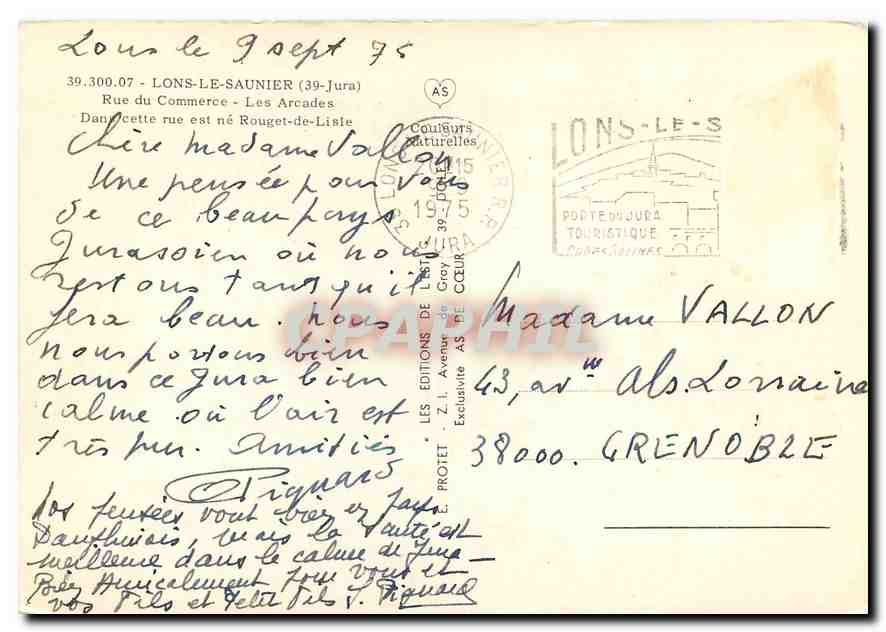 Lons le 9 sept 75
39.300.07 - LONS-LE-SAUNIER (39-Jura)
Rue du Commerce - Les Arcades
Dans cette rue est né Rouget-de-Lisle
Chère madame Vallon
Une pensée pour vous
de ce beau pays
Jurassien où nous
restons tant qu'il
fera beau. nous
nous portons bien
dans ce Jura bien
calme où l'air est
très pur. Amitiés
Pignard
Nos pensées vont bien en pays
Dauphinois, mais la santé est
meilleure dans le calme du Jura
Bien Amicalement pour vous et
vos Fils et Petit Fils J. Pignard
AS
Couleurs
Naturelles
E. PROTET - Z. I. Avenue de Gray - 39 - DOLE
LES EDITIONS DE L'EST
Exclusivité AS DE CŒUR
39 LONS SAUNIER R.P.
15
1975
JURA
LONS-LE-S
PORTE DU JURA
TOURISTIQUE
CURES SALINES
Madame VALLON
43, av Als. Lorraine
38000. GRENOBLE
CPAPHIL